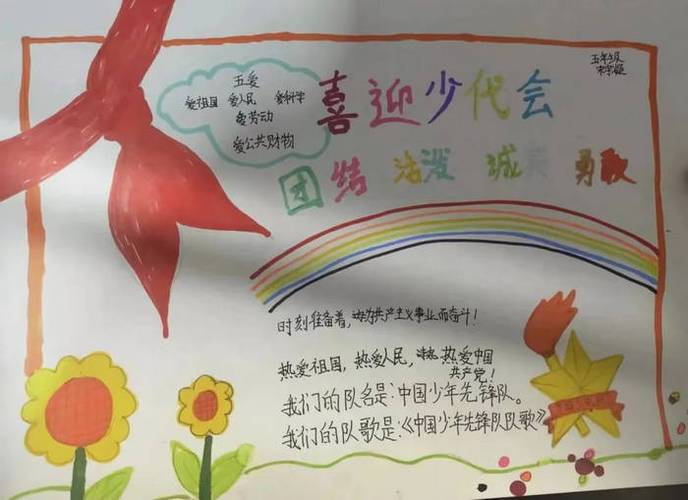 五年级
五爱
爱祖国 爱人民 爱科学
爱劳动
爱公共财物
喜迎少代会
团结 活泼 诚实 勇敢
时刻准备着,为共产主义事业而奋斗!
热爱祖国,热爱人民, 热爱中国
共产党!
我们的队名是:中国少年先锋队。
我们的队歌是:《中国少年先锋队队歌》